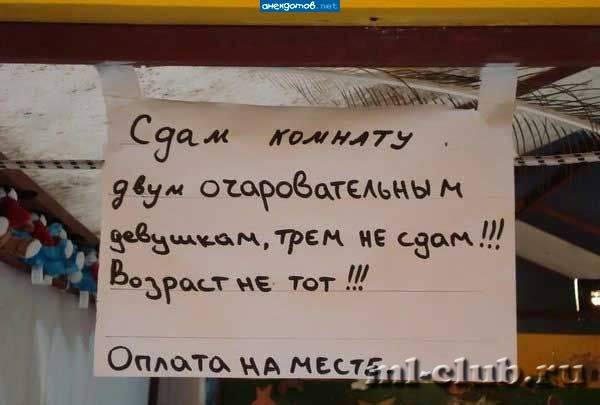 анекдотов.net
Сдам комнату.
двум очаровательным
девушкам, трем не сдам!!!
Возраст не тот!!!
Оплата на месте
ml-club.ru